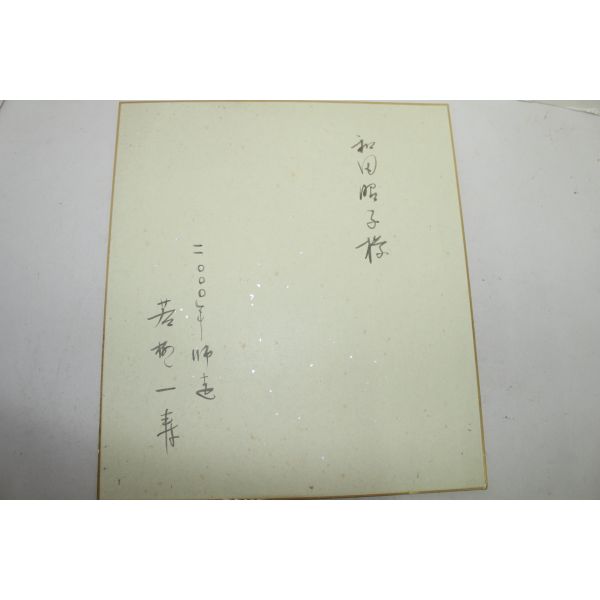 和田昭子様
二〇〇〇年師走
若桜一寿